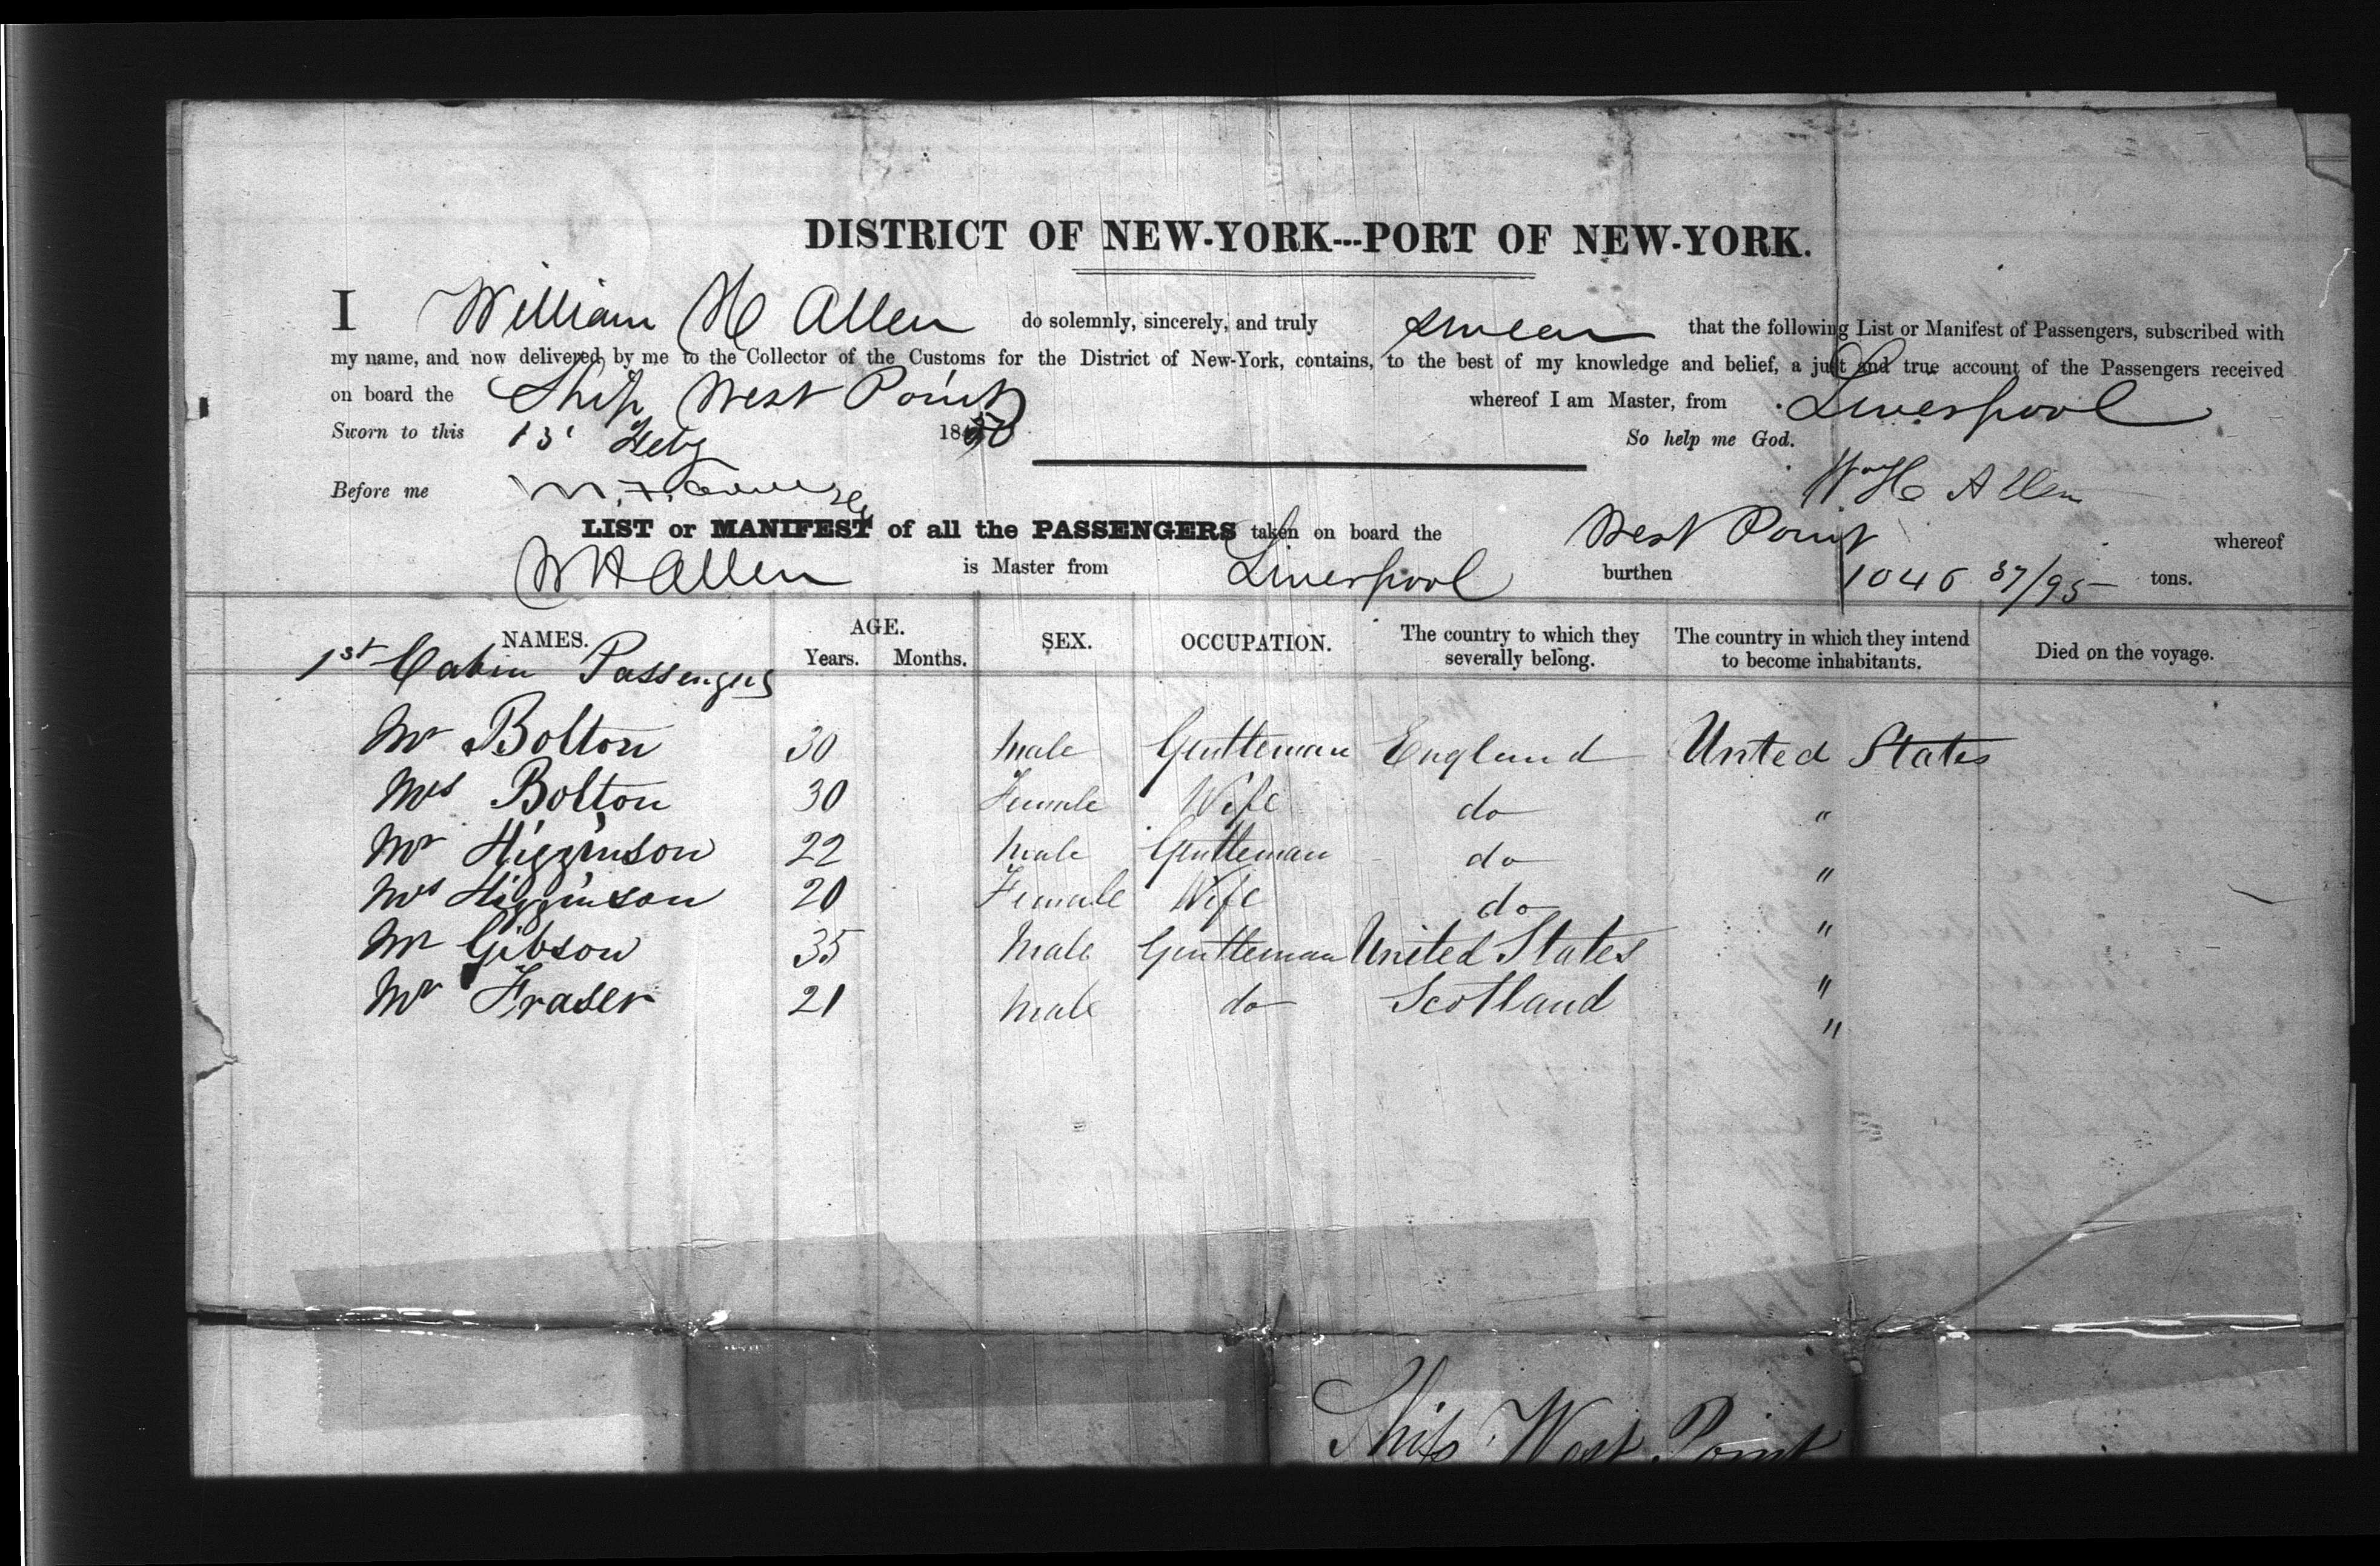 DISTRICT OF NEW-YORK---PORT OF NEW-YORK.
I William H Allen do solemnly, sincerely, and truly swear that the following List or Manifest of Passengers, subscribed with
my name, and now delivered by me to the Collector of the Customs for the District of New-York, contains, to the best of my knowledge and belief, a just and true account of the Passengers received
on board the Ship West Point whereof I am Master, from Liverpool
Sworn to this 13' Feby 1850 So help me God.
Wm H Allen
Before me
LIST or MANIFEST of all the PASSENGERS taken on board the West Point whereof
W H Allen is Master from Liverpool burthen 1046 37/95 tons.
NAMES. AGE. Years. Months. SEX. OCCUPATION. The country to which they severally belong. The country in which they intend to become inhabitants. Died on the voyage.
1st Cabin Passengers
Mr Bolton 30 Male Gentleman England United States
Mrs Bolton 30 Female Wife do "
Mr Higginson 22 Male Gentleman do "
Mrs Higginson 20 Female Wife do "
Mr Gibson 35 Male Gentleman United States "
Mr Fraser 21 Male do Scotland "
Ship West Point